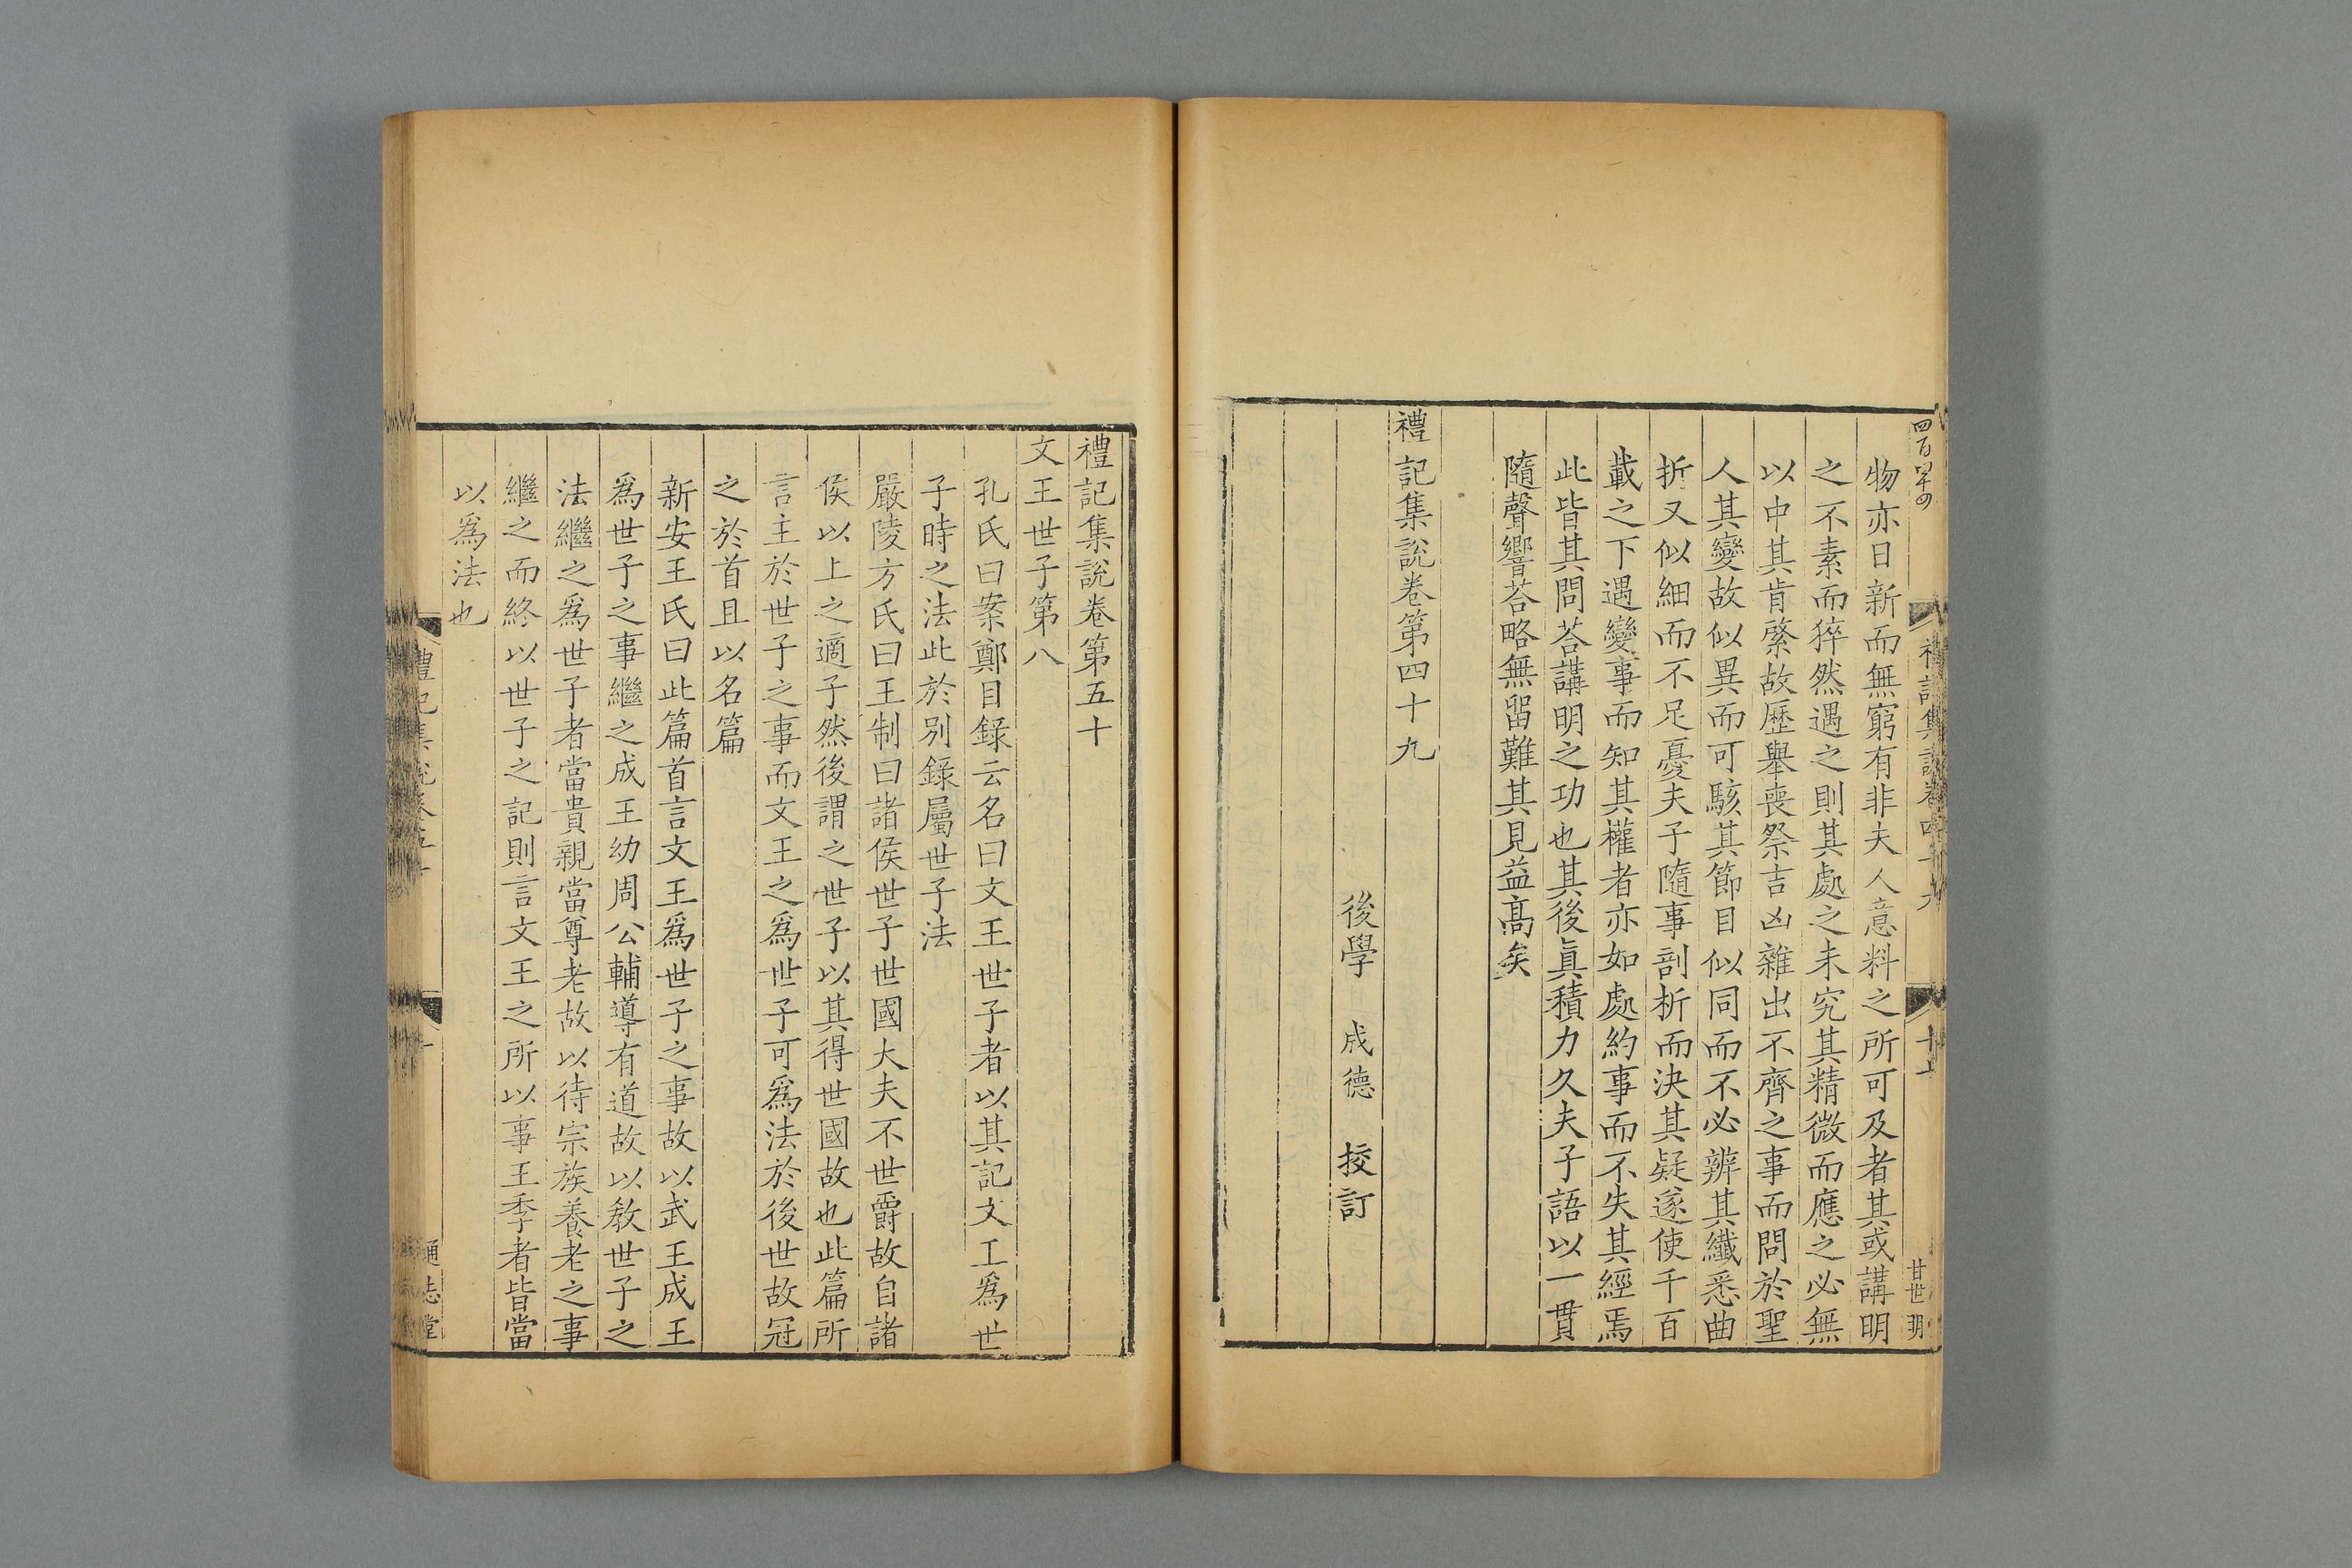 四百四十四
禮記集說卷四十九
甘世明
物亦日新而無窮有非夫人意料之所可及者其或講明
之不素而猝然遇之則其處之未究其精微而應之必無
以中其肯綮故歷舉喪祭吉凶雜出不齊之事而問於聖
人其變故似異而可駭其節目似同而不必辨其纖悉曲
折又似細而不足憂夫子隨事剖析而決其疑遂使千百
載之下遇變事而知其權者亦如處約事而不失其經焉
此皆其問荅講明之功也其後眞積力久夫子語以一貫
隨聲響荅略無留難其見益髙矣
禮記集說卷第四十九
後學 成德 挍訂
禮記集說卷第五十
文王世子第八
孔氏曰案鄭目錄云名曰文王世子者以其記文王爲世
子時之法此於別錄屬世子法
嚴陵方氏曰王制曰諸侯世子世國大夫不世爵故自諸
侯以上之適子然後謂之世子以其得世國故也此篇所
言主於世子之事而文王之爲世子可爲法於後世故冠
之於首且以名篇
新安王氏曰此篇首言文王爲世子之事故以武王成王
爲世子之事繼之成王幼周公輔導有道故以敎世子之
法繼之爲世子者當貴親當尊老故以待宗族養老之事
繼之而終以世子之記則言文王之所以事王季者皆當
以爲法也
禮記集說卷五十
通志堂